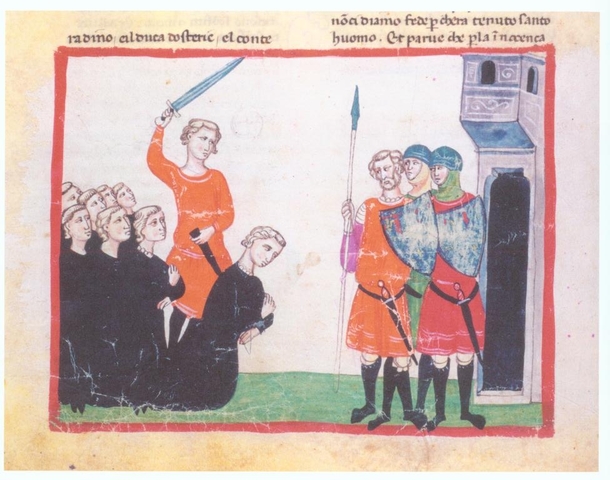 radino / eil duca dosteric / el conte
nōci diamo fede ꝑ chera tenuto santo
huomo. Et parue che ꝑ la īnocenca